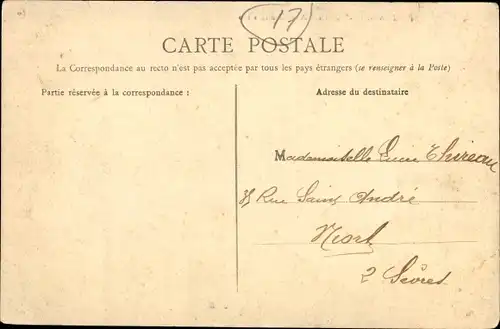 17
CARTE POSTALE
La Correspondance au recto n'est pas acceptée par tous les pays étrangers (se renseigner à la Poste)
Partie réservée à la correspondance :
Adresse du destinataire
Mademoiselle Thireau
Rue Saint André
Niort
2 Sèvres